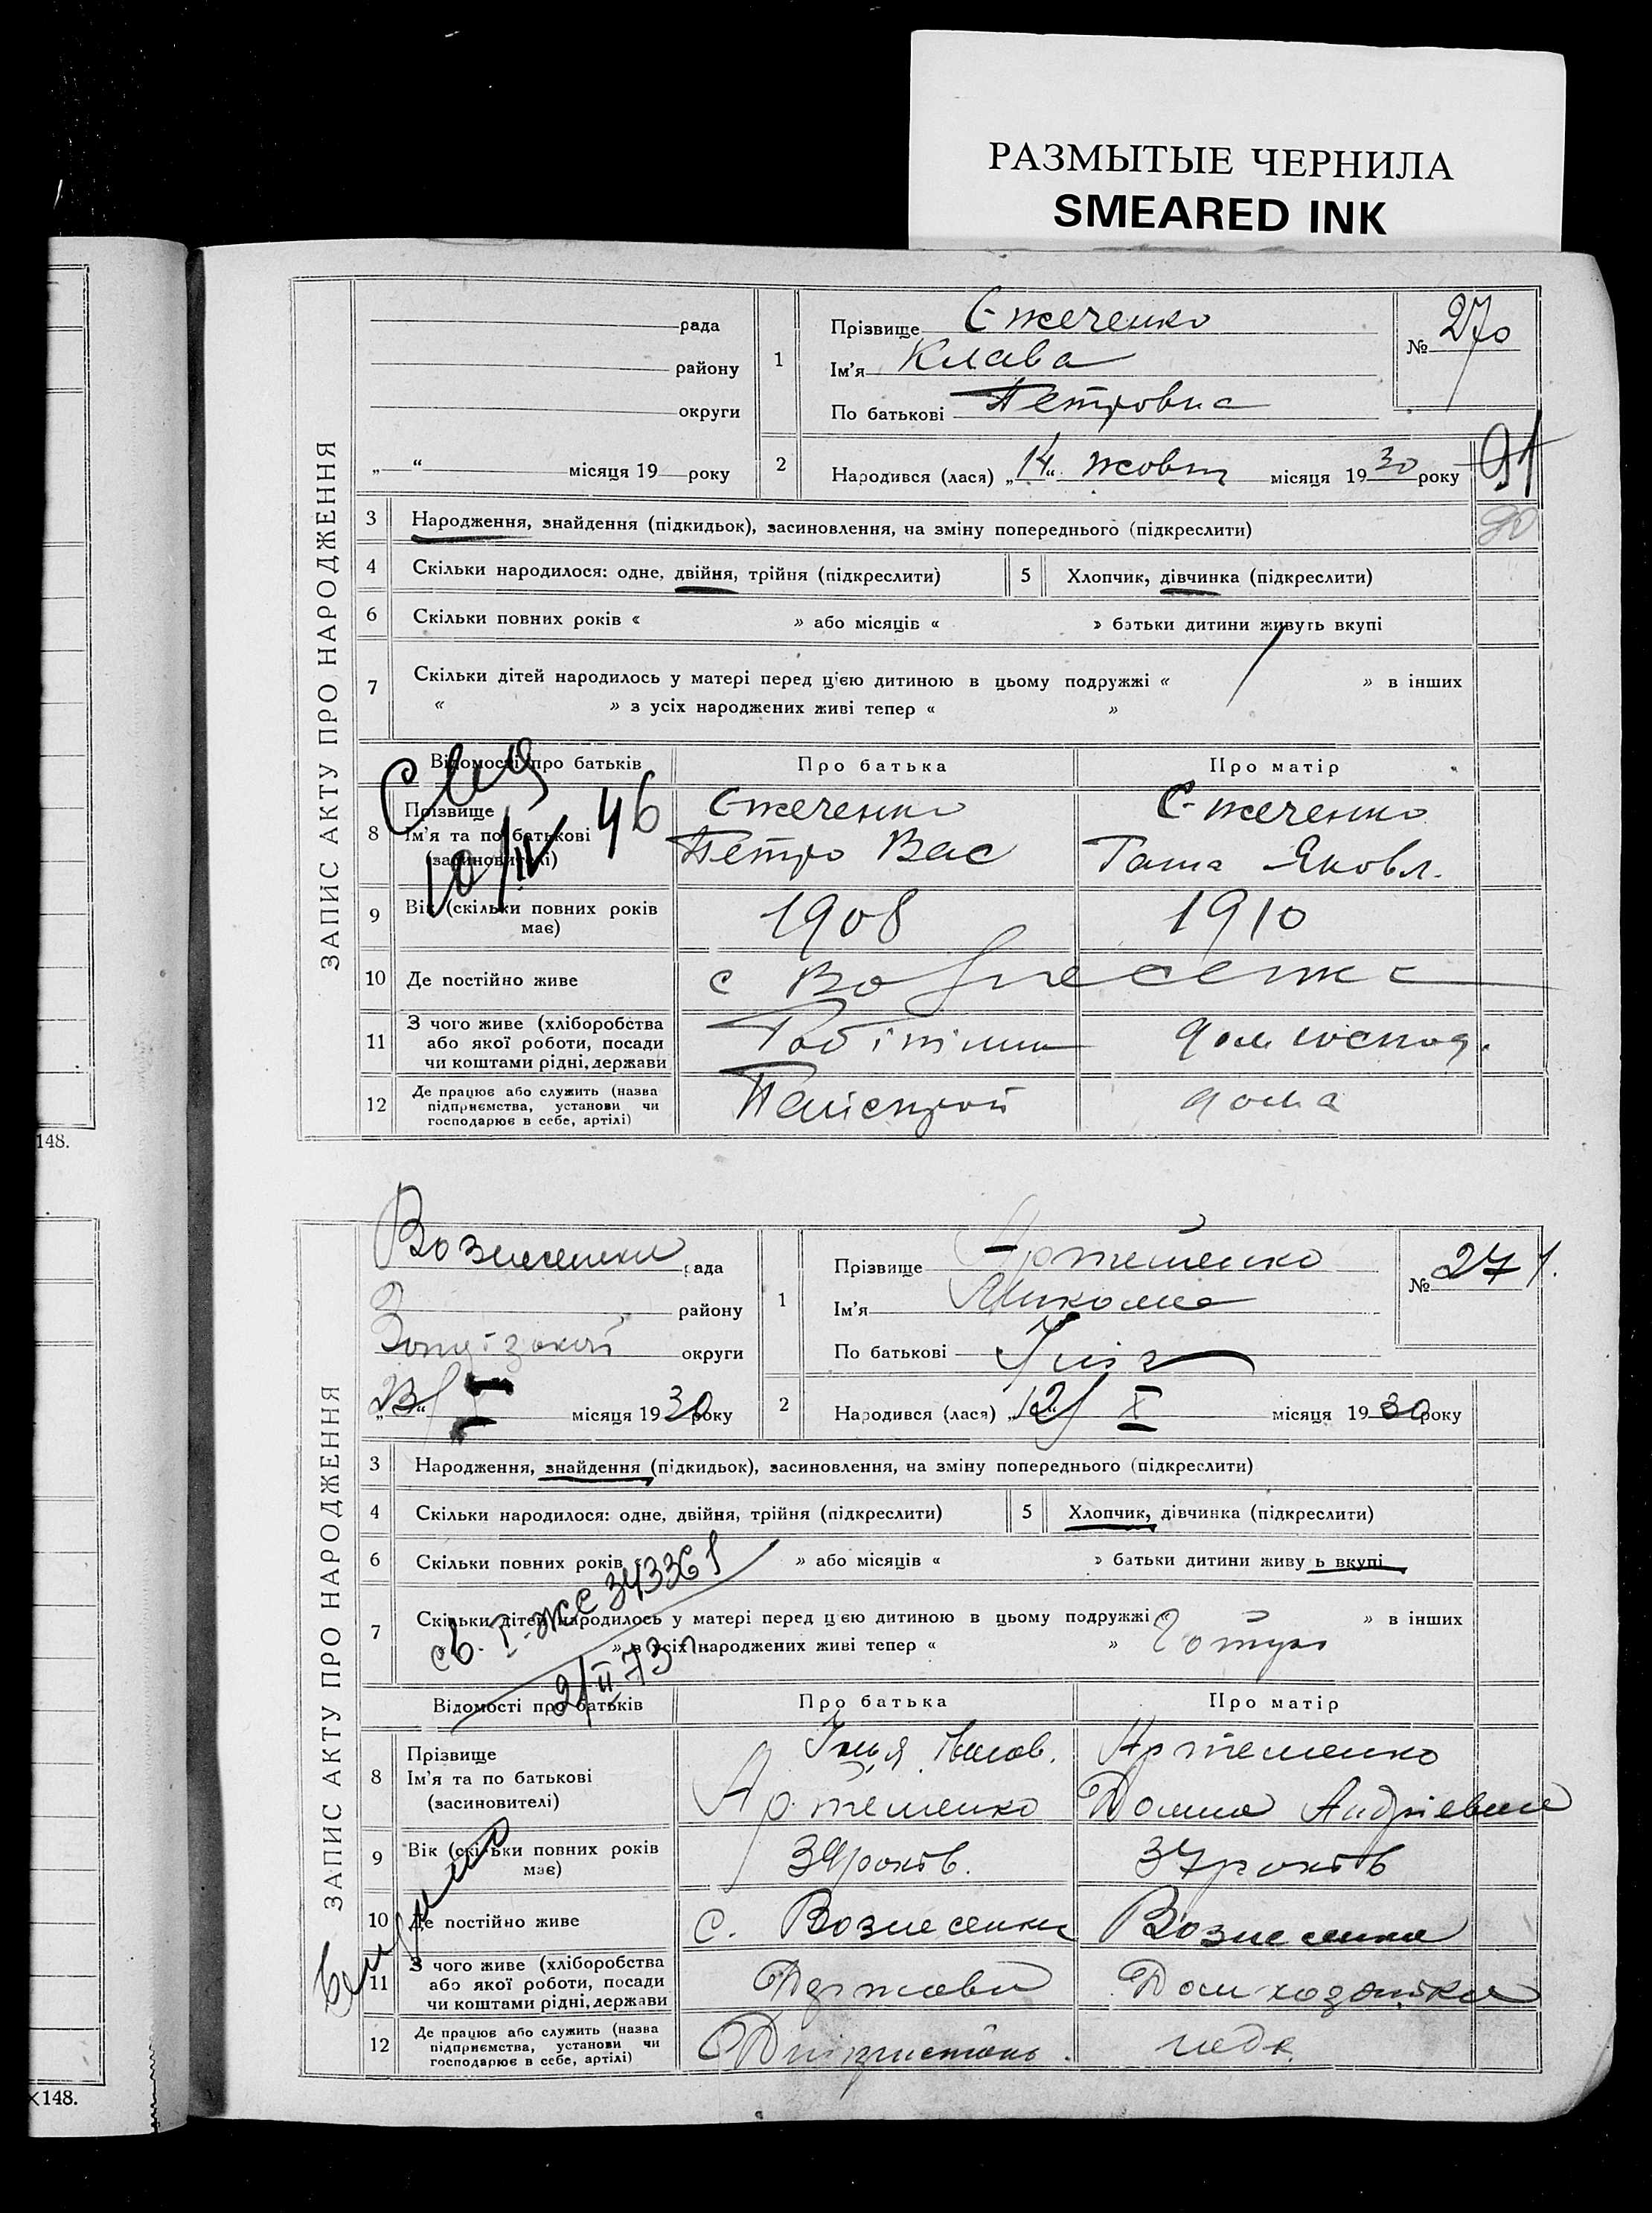 РАЗМЫТЫЕ ЧЕРНИЛА
SMEARED INK
ЗАПИС АКТУ ПРО НАРОДЖЕННЯ
рада
району
округи
„ “ місяця 19 року
1
Прізвище
Ім'я Клава
По батькові Петровна
№ 270
2
Народився (лася) „14“ жовт місяця 1930 року
91
90
3 Народження, знайдення (підкидьок), засиновлення, на зміну попереднього (підкреслити)
4 Скільки народилося: одне, двійня, трійня (підкреслити)
5 Хлопчик, дівчинка (підкреслити)
6 Скільки повних років « » або місяців « » батьки дитини живуть вкупі
7 Скільки дітей народилось у матері перед цією дитиною в цьому подружжі « » в інших
« » з усіх народжених живі тепер « »
Відомості про батьків Про батька Про матір
46
8 Прізвище
Ім'я та по батькові
(засиновителі)
Петро Вас
Яковл.
9 Вік (скільки повних років має)
1908 1910
10 Де постійно живе
с Вознесенка
11 З чого живе (хліборобства або якої роботи, посади чи коштами рідні, держави
дом господ.
12 Де працює або служить (назва підприємства, установи чи господарює в себе, артілі)
дома
148.
ЗАПИС АКТУ ПРО НАРОДЖЕННЯ
Вознесенки рада
району
округи
„23“ місяця 1930 року
1
Прізвище Артеменко
Ім'я Микола
По батькові
№ 271.
2
Народився (лася) „12“ X місяця 1930 року
3 Народження, знайдення (підкидьок), засиновлення, на зміну попереднього (підкреслити)
4 Скільки народилося: одне, двійня, трійня (підкреслити)
5 Хлопчик, дівчинка (підкреслити)
6 Скільки повних років « » або місяців « » батьки дитини живуть вкупі
7 Скільки дітей народилось у матері перед цією дитиною в цьому подружжі « » в інших
« » з усіх народжених живі тепер « »
св. I-ЖС 343361
2/II 73
Відомості про батьків Про батька Про матір
8 Прізвище
Ім'я та по батькові
(засиновителі)
Ілья
Артеменко
Артеменко
Домна Андрієвна
9 Вік (скільки повних років має)
39 років. 37 років
10 Де постійно живе
с. Вознесенка Вознесенка
11 З чого живе (хліборобства або якої роботи, посади чи коштами рідні, держави
Держави Дом хозяйка
12 Де працює або служить (назва підприємства, установи чи господарює в себе, артілі)
×148.